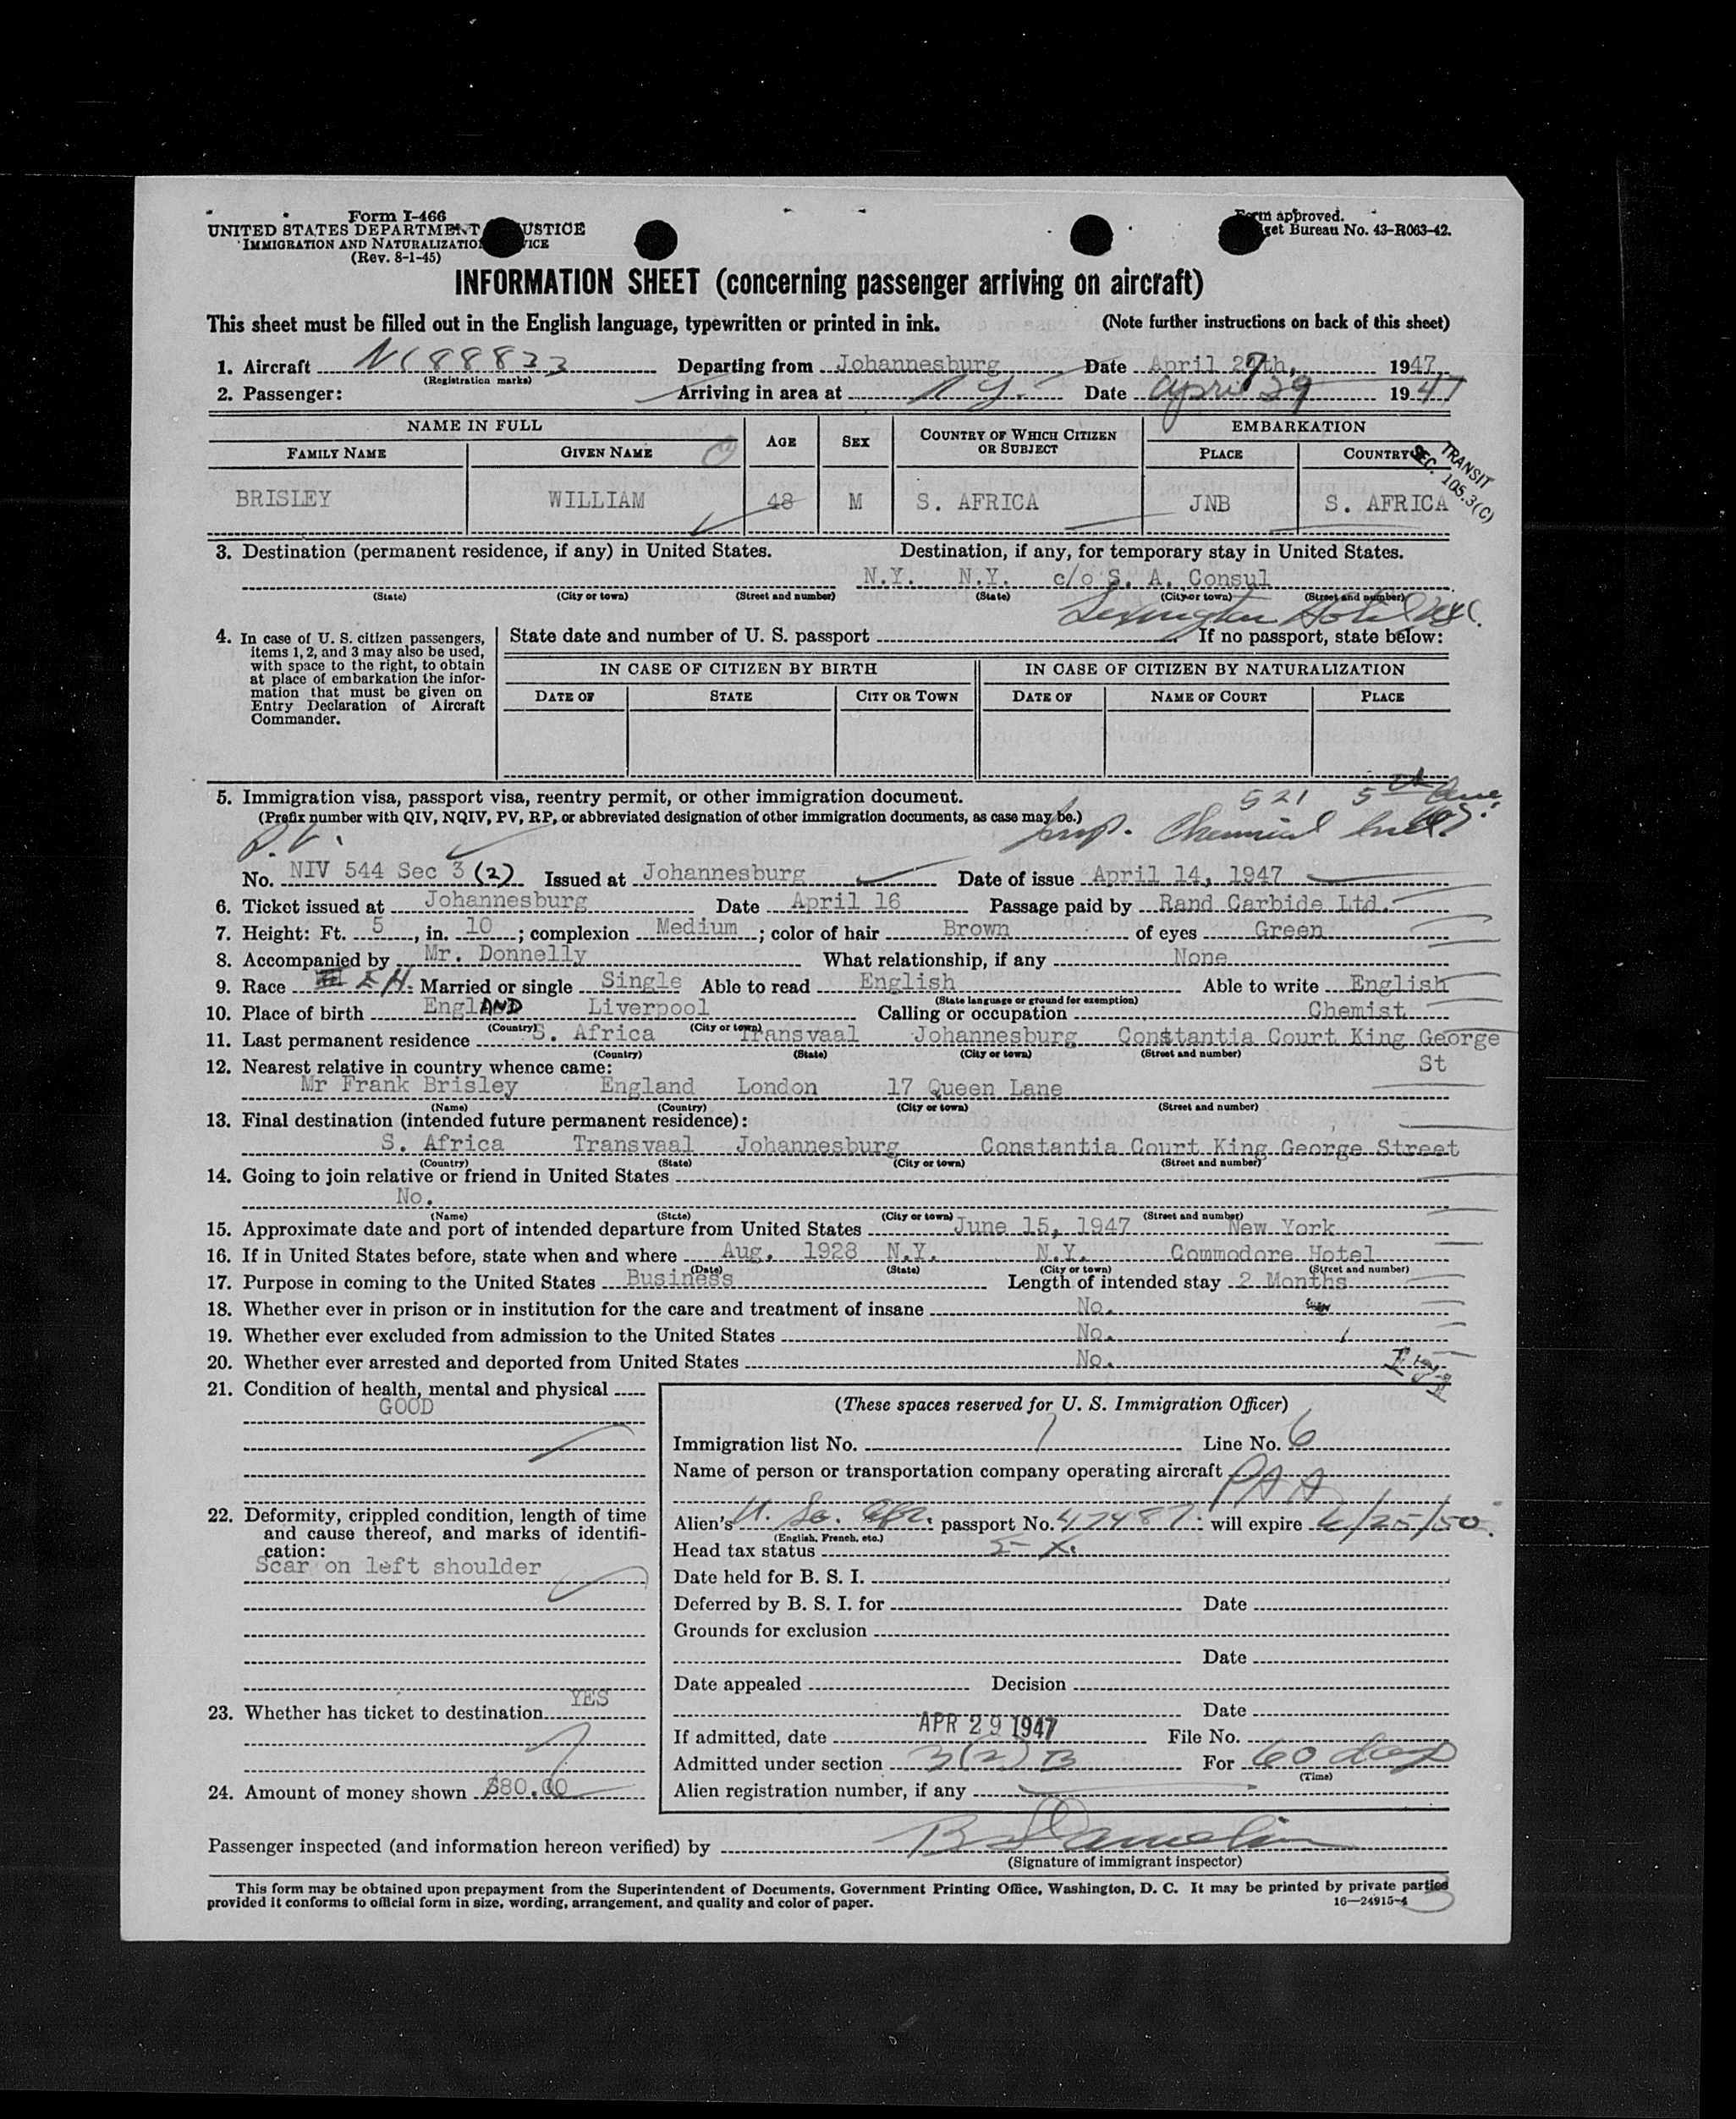 Form I-466
UNITED STATES DEPARTMENT JUSTICE
IMMIGRATION AND NATURALIZATION
(Rev. 8-1-45)
Form approved.
Budget Bureau No. 43-R063-42.
INFORMATION SHEET (concerning passenger arriving on aircraft)
This sheet must be filled out in the English language, typewritten or printed in ink. (Note further instructions on back of this sheet)
1. Aircraft NC88833 Departing from Johannesburg Date April 27th, 1947
(Registration marks)
2. Passenger: Arriving in area at N.Y. Date April 29 1947
NAME IN FULL AGE SEX COUNTRY OF WHICH CITIZEN OR SUBJECT EMBARKATION
FAMILY NAME GIVEN NAME PLACE COUNTRY
TRANSIT
SEC. 105.3(C)
BRISLEY WILLIAM 48 M S. AFRICA JNB S. AFRICA
3. Destination (permanent residence, if any) in United States. Destination, if any, for temporary stay in United States.
N.Y. N.Y. c/o S. A. Consul
(State) (City or town) (Street and number) (State) (City or town) (Street and number)
Lexington Hotel
4. In case of U. S. citizen passengers, items 1, 2, and 3 may also be used, with space to the right, to obtain at place of embarkation the information that must be given on Entry Declaration of Aircraft Commander.
State date and number of U. S. passport If no passport, state below:
IN CASE OF CITIZEN BY BIRTH IN CASE OF CITIZEN BY NATURALIZATION
DATE OF STATE CITY OR TOWN DATE OF NAME OF COURT PLACE
5. Immigration visa, passport visa, reentry permit, or other immigration document.
521 5th Ave.
(Prefix number with QIV, NQIV, PV, RP, or abbreviated designation of other immigration documents, as case may be.)
P.V. Chemical
No. NIV 544 Sec 3 (2) Issued at Johannesburg Date of issue April 14, 1947
6. Ticket issued at Johannesburg Date April 16 Passage paid by Rand Carbide Ltd.
7. Height: Ft. 5, in. 10; complexion Medium; color of hair Brown of eyes Green
8. Accompanied by Mr. Donnelly What relationship, if any None
9. Race Married or single Single Able to read English Able to write English
(State language or ground for exemption)
10. Place of birth EnglAND Liverpool Calling or occupation Chemist
(Country) (City or town)
11. Last permanent residence S. Africa Transvaal Johannesburg Constantia Court King George St
(Country) (State) (City or town) (Street and number)
12. Nearest relative in country whence came:
Mr Frank Brisley England London 17 Queen Lane
(Name) (Country) (City or town) (Street and number)
13. Final destination (intended future permanent residence):
S. Africa Transvaal Johannesburg Constantia Court King George Street
(Country) (State) (City or town) (Street and number)
14. Going to join relative or friend in United States
No.
(Name) (State) (City or town) (Street and number)
15. Approximate date and port of intended departure from United States June 15, 1947 New York
16. If in United States before, state when and where Aug. 1928 N.Y. N.Y. Commodore Hotel
(Date) (State) (City or town) (Street and number)
17. Purpose in coming to the United States Business Length of intended stay 2 Months
18. Whether ever in prison or in institution for the care and treatment of insane No.
19. Whether ever excluded from admission to the United States No.
20. Whether ever arrested and deported from United States No.
21. Condition of health, mental and physical
GOOD
22. Deformity, crippled condition, length of time and cause thereof, and marks of identification:
Scar on left shoulder
23. Whether has ticket to destination YES
24. Amount of money shown $80.00
(These spaces reserved for U. S. Immigration Officer)
Immigration list No. 1 Line No. 6
Name of person or transportation company operating aircraft PAA
Alien's U. So. Afr. passport No. 47487 will expire 6/25/50.
(English, French, etc.)
Head tax status
Date held for B. S. I.
Deferred by B. S. I. for Date
Grounds for exclusion
Date
Date appealed Decision
Date
If admitted, date APR 29 1947 File No.
Admitted under section 3(2) B For 60 days
(Time)
Alien registration number, if any
Passenger inspected (and information hereon verified) by
(Signature of immigrant inspector)
This form may be obtained upon prepayment from the Superintendent of Documents, Government Printing Office, Washington, D. C. It may be printed by private parties
provided it conforms to official form in size, wording, arrangement, and quality and color of paper. 16—24915-4